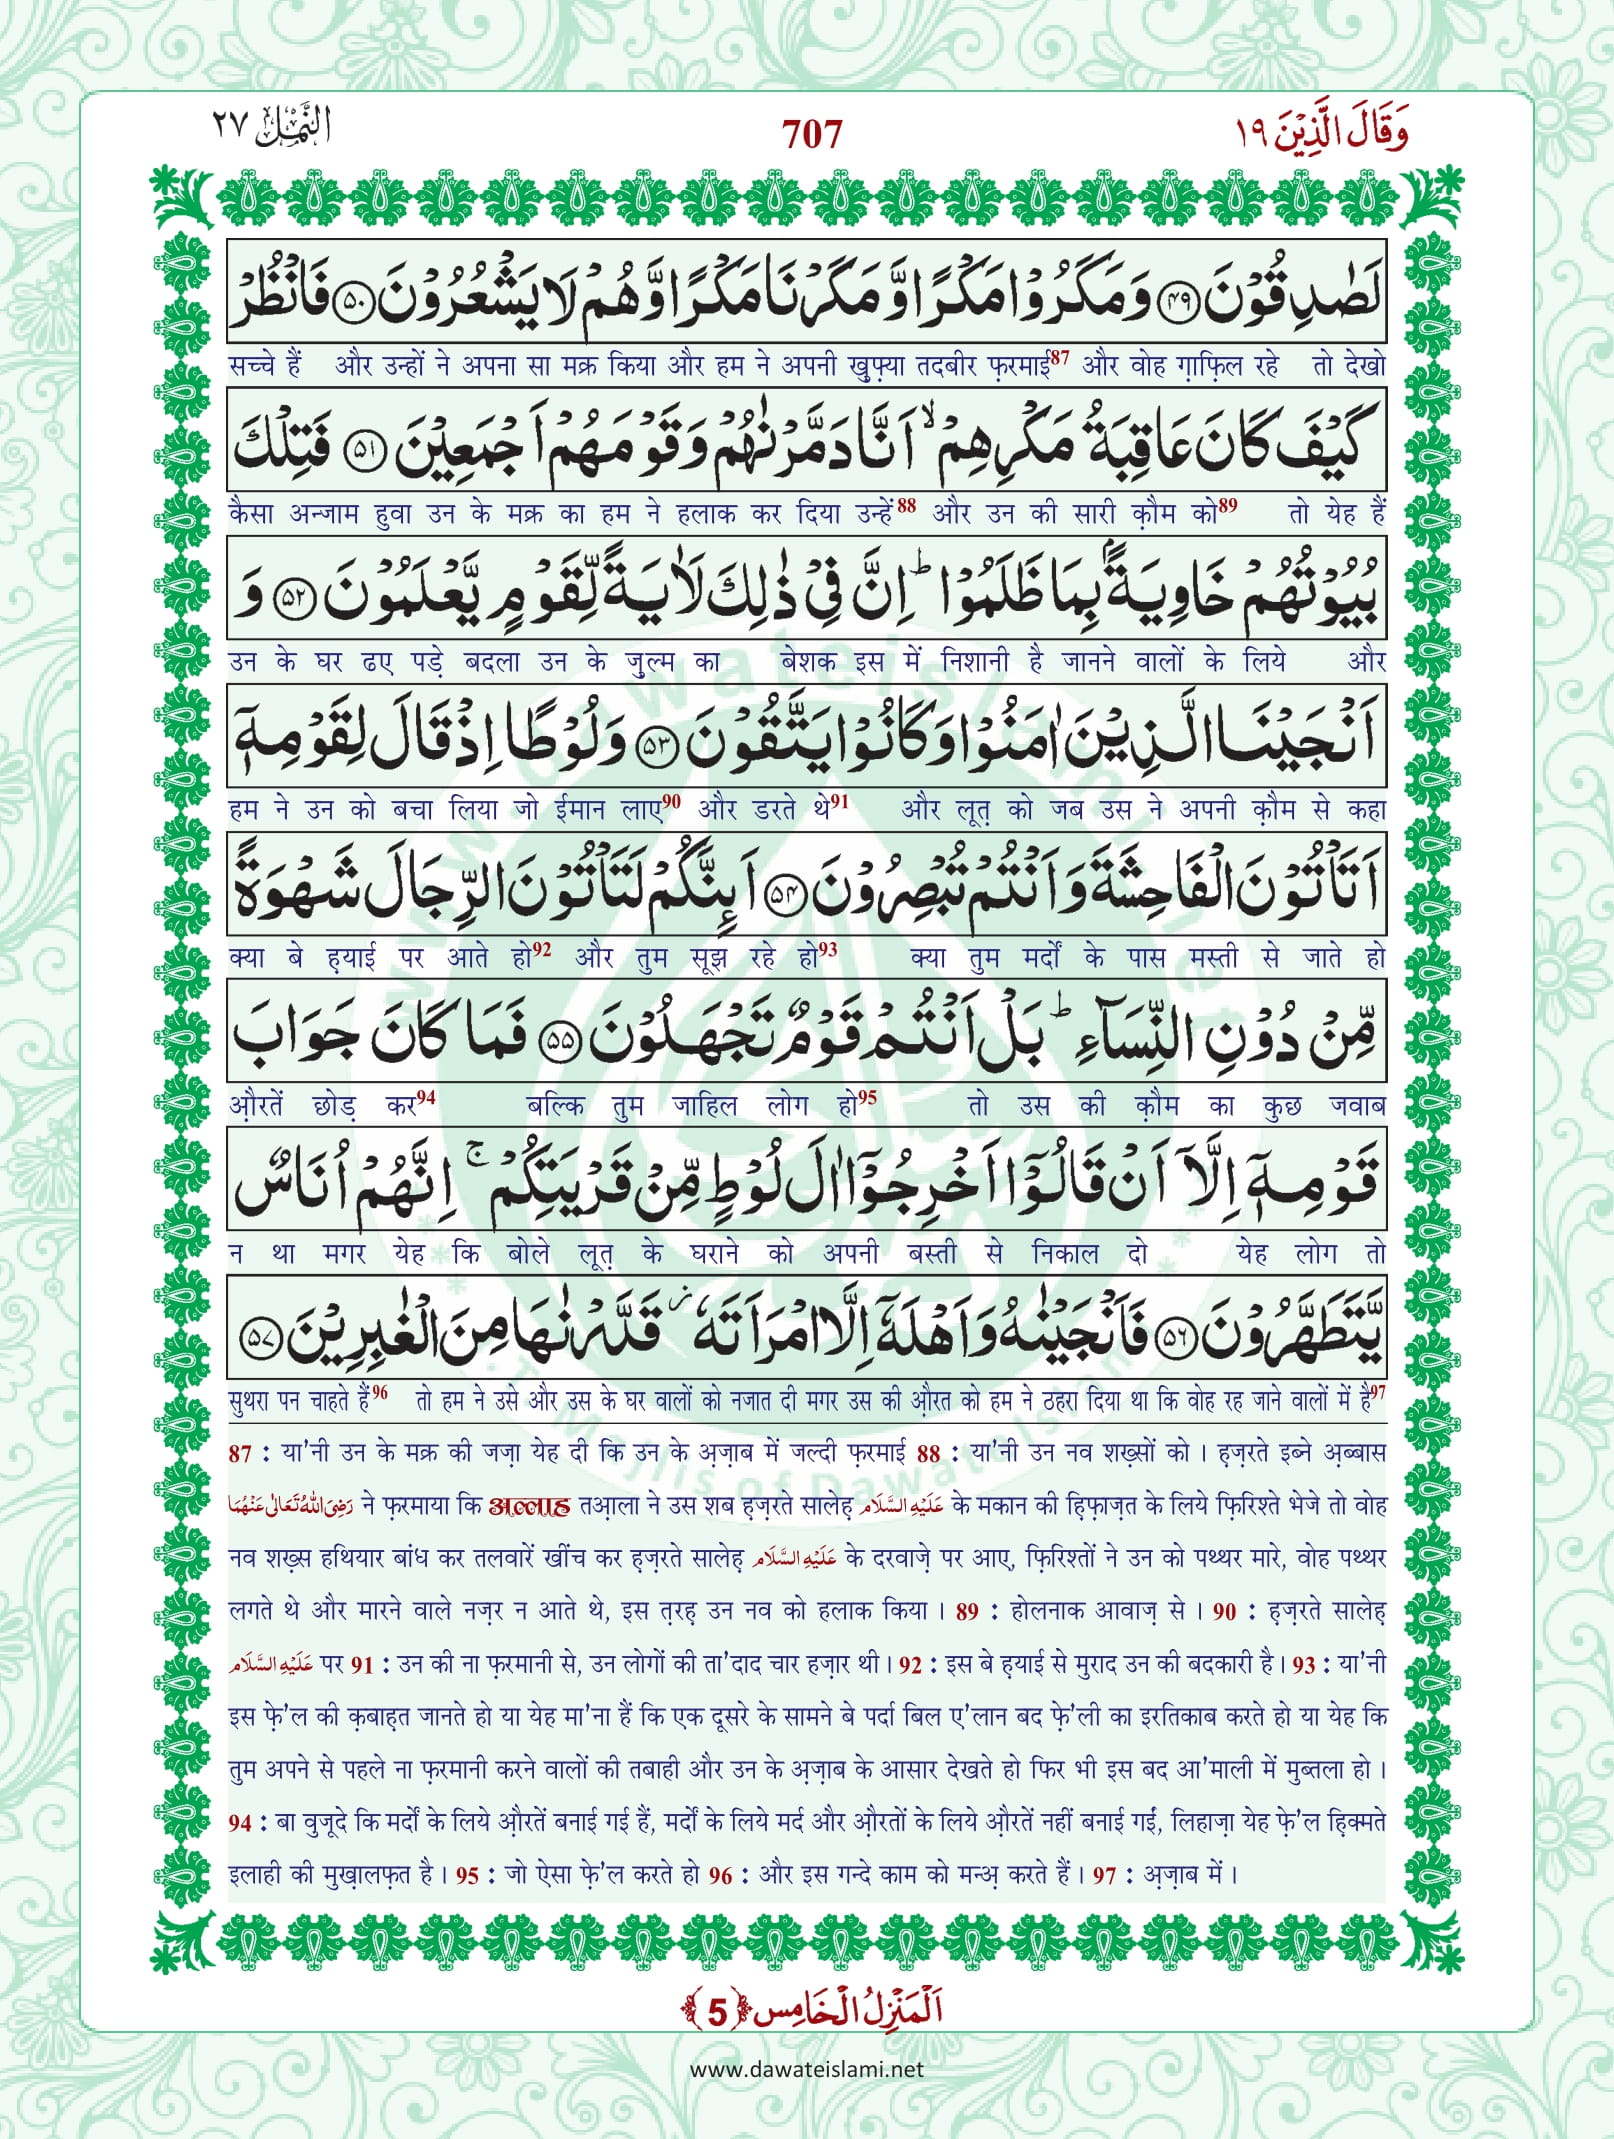 وَقَالَ الَّذِيْنَ ١٩
707
النَّمْل ٢٧
لَصٰدِقُوْنَ ﴿۴۹﴾ وَمَكَرُوْا مَكْرًا وَّ مَكَرْنَا مَكْرًا وَّهُمْ لَا يَشْعُرُوْنَ ﴿۵۰﴾ فَانْظُرْ
सच्चे हैं और उन्हों ने अपना सा मक्र किया और हम ने अपनी खुफ़्या तदबीर फ़रमाई87 और वोह ग़ाफ़िल रहे तो देखो
كَيْفَ كَانَ عَاقِبَةُ مَكْرِهِمْ ۙ اَنَّا دَمَّرْنٰهُمْ وَقَوْمَهُمْ اَجْمَعِيْنَ ﴿۵۱﴾ فَتِلْكَ
कैसा अन्जाम हुवा उन के मक्र का हम ने हलाक कर दिया उन्हें88 और उन की सारी क़ौम को89 तो येह हैं
بُيُوْتُهُمْ خَاوِيَةًۢ بِمَا ظَلَمُوْا ؕ اِنَّ فِيْ ذٰلِكَ لَاٰيَةً لِّقَوْمٍ يَّعْلَمُوْنَ ﴿۵۲﴾ وَ
उन के घर ढए पड़े बदला उन के ज़ुल्म का बेशक इस में निशानी है जानने वालों के लिये और
اَنْجَيْنَا الَّذِيْنَ اٰمَنُوْا وَكَانُوْا يَتَّقُوْنَ ﴿۵۳﴾ وَلُوْطًا اِذْ قَالَ لِقَوْمِهٖۤ
हम ने उन को बचा लिया जो ईमान लाए90 और डरते थे91 और लूत़ को जब उस ने अपनी क़ौम से कहा
اَتَاْتُوْنَ الْفَاحِشَةَ وَاَنْتُمْ تُبْصِرُوْنَ ﴿۵۴﴾ اَىِٕنَّكُمْ لَتَاْتُوْنَ الرِّجَالَ شَهْوَةً
क्या बे ह़याई पर आते हो92 और तुम सूझ रहे हो93 क्या तुम मर्दों के पास मस्ती से जाते हो
مِّنْ دُوْنِ النِّسَآءِ ؕ بَلْ اَنْتُمْ قَوْمٌ تَجْهَلُوْنَ ﴿۵۵﴾ فَمَا كَانَ جَوَابَ
औ़रतें छोड़ कर94 बल्कि तुम जाहिल लोग हो95 तो उस की क़ौम का कुछ जवाब
قَوْمِهٖۤ اِلَّاۤ اَنْ قَالُوْۤا اَخْرِجُوْۤا اٰلَ لُوْطٍ مِّنْ قَرْيَتِكُمْ ۚ اِنَّهُمْ اُنَاسٌ
न था मगर येह कि बोले लूत़ के घराने को अपनी बस्ती से निकाल दो येह लोग तो
يَّتَطَهَّرُوْنَ ﴿۵۶﴾ فَاَنْجَيْنٰهُ وَاَهْلَهٗۤ اِلَّا امْرَاَتَهٗ ؗ قَدَّرْنٰهَا مِنَ الْغٰبِرِيْنَ ﴿۵۷﴾
सुथरा पन चाहते हैं96 तो हम ने उसे और उस के घर वालों को नजात दी मगर उस की औ़रत को हम ने ठहरा दिया था कि वोह रह जाने वालों में है97
87 : या'नी उन के मक्र की जज़ा येह दी कि उन के अ़ज़ाब में जल्दी फ़रमाई 88 : या'नी उन नव शख़्सों को । ह़ज़रते इब्ने अ़ब्बास
رَضِیَ اللّٰهُ تَعَالٰی عَنْهُمَا ने फ़रमाया कि अल्लाह तआ़ला ने उस शब ह़ज़रते सालेह़ عَلَيْهِ السَّلَام के मकान की ह़िफ़ाज़त के लिये फ़िरिश्ते भेजे तो वोह
नव शख़्स हथियार बांध कर तलवारें खींच कर ह़ज़रते सालेह़ عَلَيْهِ السَّلَام के दरवाज़े पर आए, फ़िरिश्तों ने उन को पथ्थर मारे, वोह पथ्थर
लगते थे और मारने वाले नज़र न आते थे, इस त़रह़ उन नव को हलाक किया । 89 : होलनाक आवाज़ से । 90 : ह़ज़रते सालेह़
عَلَيْهِ السَّلَام पर 91 : उन की ना फ़रमानी से, उन लोगों की ता'दाद चार हज़ार थी । 92 : इस बे ह़याई से मुराद उन की बदकारी है । 93 : या'नी
इस फ़े'ल की क़बाह़त जानते हो या येह मा'ना हैं कि एक दूसरे के सामने बे पर्दा बिल ए'लान बद फ़े'ली का इरतिकाब करते हो या येह कि
तुम अपने से पहले ना फ़रमानी करने वालों की तबाही और उन के अ़ज़ाब के आसार देखते हो फिर भी इस बद आ'माली में मुब्तला हो ।
94 : बा वुजूदे कि मर्दों के लिये औ़रतें बनाई गई हैं, मर्दों के लिये मर्द और औ़रतों के लिये औ़रतें नहीं बनाई गईं, लिहाज़ा येह फ़े'ल ह़िक्मते
इलाही की मुख़ालफ़त है । 95 : जो ऐसा फ़े'ल करते हो 96 : और इस गन्दे काम को मन्अ़ करते हैं । 97 : अ़ज़ाब में ।
اَلْمَنْزِلُ الْخَامِس ﴿5﴾
www.dawateislami.net